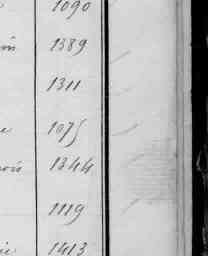 1090
1389
1311
1075
1344
1119
1413